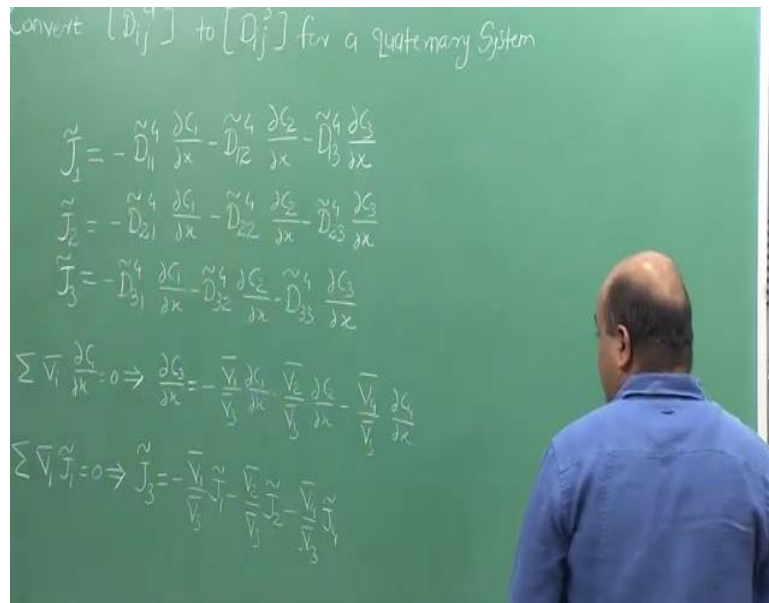 Convert [D̃ᵢⱼ⁴] to [D̃ᵢⱼ³] for a quaternary System
J̃₁ = - D̃₁₁⁴ ∂C₁/∂x - D̃₁₂⁴ ∂C₂/∂x - D̃₁₃⁴ ∂C₃/∂x
J̃₂ = - D̃₂₁⁴ ∂C₁/∂x - D̃₂₂⁴ ∂C₂/∂x - D̃₂₃⁴ ∂C₃/∂x
J̃₃ = - D̃₃₁⁴ ∂C₁/∂x - D̃₃₂⁴ ∂C₂/∂x - D̃₃₃⁴ ∂C₃/∂x
∑ V̄ᵢ ∂Cᵢ/∂x = 0 ⇒ ∂C₃/∂x = - V̄₁/V̄₃ ∂C₁/∂x - V̄₂/V̄₃ ∂C₂/∂x - V̄₄/V̄₃ ∂C₄/∂x
∑ V̄ᵢ J̃ᵢ = 0 ⇒ J̃₃ = - V̄₁/V̄₃ J̃₁ - V̄₂/V̄₃ J̃₂ - V̄₄/V̄₃ J̃₄